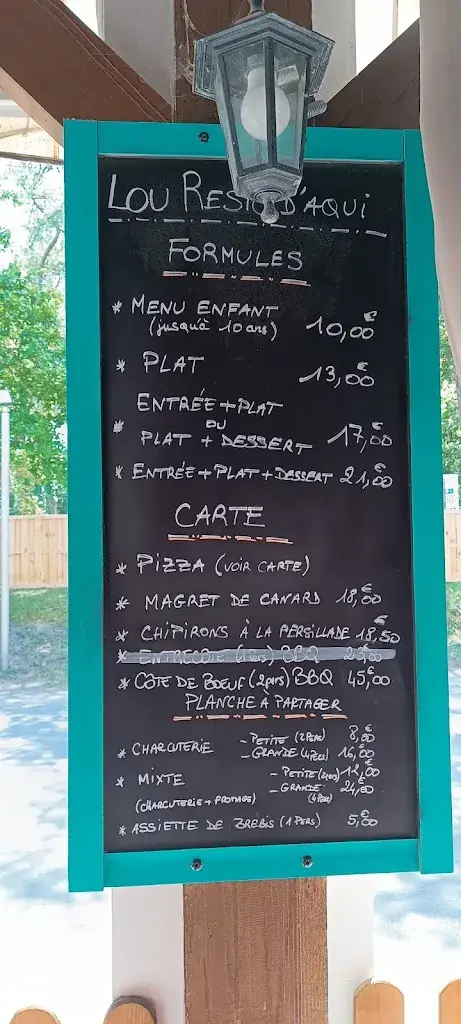 LOU RESTO D'AQUI
FORMULES
* MENU ENFANT
(jusqu'à 10 ans) 10,00€
* PLAT 13,00€
ENTRÉE+PLAT
* OU
PLAT + DESSERT 17,00€
* ENTRÉE+PLAT+DESSERT 21,00€
CARTE
* PIZZA (VOIR CARTE)
* MAGRET DE CANARD 18,00€
* CHIPIRONS À LA PERSILLADE 18,50€
* ENTRECÔTE (1 pers) BBQ
* CÔTE DE BOEUF (2 pers) BBQ 45,00€
PLANCHE À PARTAGER
* CHARCUTERIE - PETITE (2 PERS) 8,00€
- GRANDE (4 PERS) 16,00€
* MIXTE - PETITE (2 pers) 12,00€
(CHARCUTERIE + FROMAGE) - GRANDE 24,00€
(4 PERS)
* ASSIETTE DE BREBIS (1 PERS) 5,00€